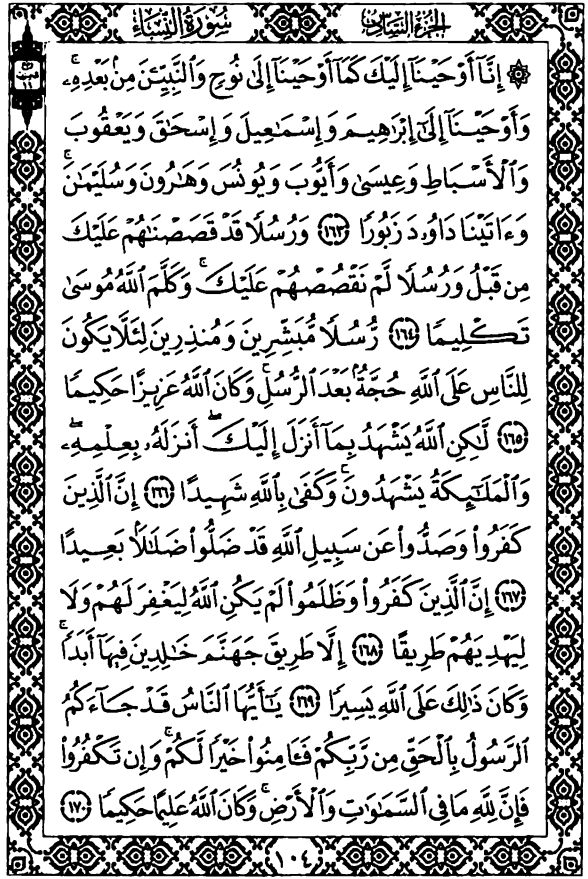 الجزء السادس سورة النساء
۞ إِنَّآ أَوْحَيْنَآ إِلَيْكَ كَمَآ أَوْحَيْنَآ إِلَىٰ نُوحٍ وَٱلنَّبِيِّـۧنَ مِنۢ بَعْدِهِۦۚ
وَأَوْحَيْنَآ إِلَىٰٓ إِبْرَٰهِيمَ وَإِسْمَٰعِيلَ وَإِسْحَٰقَ وَيَعْقُوبَ
وَٱلْأَسْبَاطِ وَعِيسَىٰ وَأَيُّوبَ وَيُونُسَ وَهَٰرُونَ وَسُلَيْمَٰنَۚ
وَءَاتَيْنَا دَاوُۥدَ زَبُورًا ١٦٣ وَرُسُلًا قَدْ قَصَصْنَٰهُمْ عَلَيْكَ
مِن قَبْلُ وَرُسُلًا لَّمْ نَقْصُصْهُمْ عَلَيْكَۚ وَكَلَّمَ ٱللَّهُ مُوسَىٰ
تَكْلِيمًا ١٦٤ رُّسُلًا مُّبَشِّرِينَ وَمُنذِرِينَ لِئَلَّا يَكُونَ
لِلنَّاسِ عَلَى ٱللَّهِ حُجَّةٌۢ بَعْدَ ٱلرُّسُلِۚ وَكَانَ ٱللَّهُ عَزِيزًا حَكِيمًا
١٦٥ لَّٰكِنِ ٱللَّهُ يَشْهَدُ بِمَآ أَنزَلَ إِلَيْكَۖ أَنزَلَهُۥ بِعِلْمِهِۦۖ
وَٱلْمَلَٰٓئِكَةُ يَشْهَدُونَۚ وَكَفَىٰ بِٱللَّهِ شَهِيدًا ١٦٦ إِنَّ ٱلَّذِينَ
كَفَرُوا۟ وَصَدُّوا۟ عَن سَبِيلِ ٱللَّهِ قَدْ ضَلُّوا۟ ضَلَٰلًۢا بَعِيدًا
١٦٧ إِنَّ ٱلَّذِينَ كَفَرُوا۟ وَظَلَمُوا۟ لَمْ يَكُنِ ٱللَّهُ لِيَغْفِرَ لَهُمْ وَلَا
لِيَهْدِيَهُمْ طَرِيقًا ١٦٨ إِلَّا طَرِيقَ جَهَنَّمَ خَٰلِدِينَ فِيهَآ أَبَدًاۚ
وَكَانَ ذَٰلِكَ عَلَى ٱللَّهِ يَسِيرًا ١٦٩ يَٰٓأَيُّهَا ٱلنَّاسُ قَدْ جَآءَكُمُ
ٱلرَّسُولُ بِٱلْحَقِّ مِن رَّبِّكُمْ فَـَٔامِنُوا۟ خَيْرًا لَّكُمْۚ وَإِن تَكْفُرُوا۟
فَإِنَّ لِلَّهِ مَا فِى ٱلسَّمَٰوَٰتِ وَٱلْأَرْضِۚ وَكَانَ ٱللَّهُ عَلِيمًا حَكِيمًا ١٧٠
١٠٤